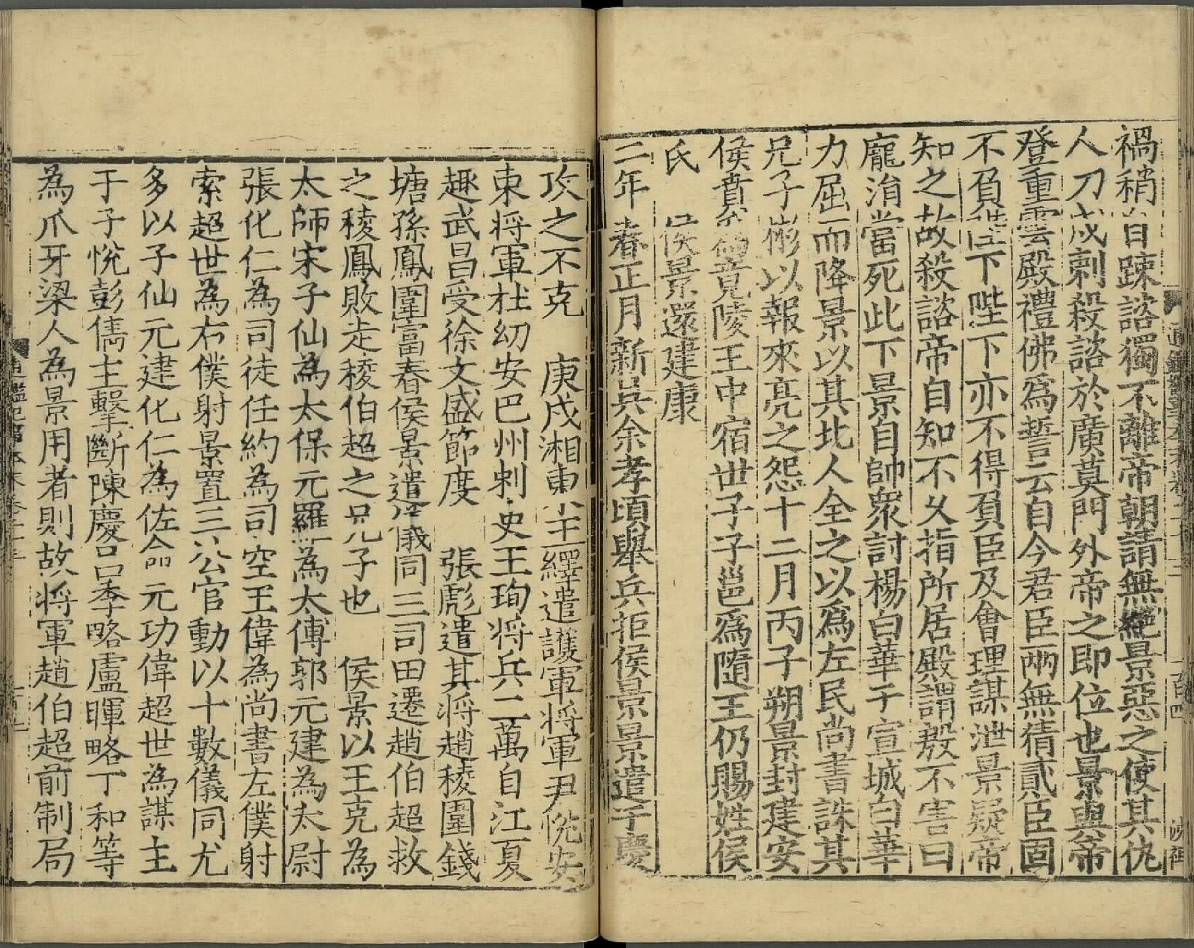 禍稍自疎諮獨不離帝朝請無絶景惡之使其仇
人刀戍刺殺諮於廣莫門外帝之即位也景與帝
登重雲殿禮佛爲誓云自今君臣兩無猜貳臣固
不負陛下陛下亦不得負臣及會理謀泄景疑帝
知之故殺諮帝自知不久指所居殿謂殷不害曰
龐涓當死此下景自帥衆討楊白華于宣城白華
力屈而降景以其北人全之以爲左民尚書誅其
兄子彬以報來亮之怨十二月丙子朔景封建安
侯賁爲竟陵王中宿世子子邕爲隨王仍賜姓侯
氏　侯景還建康
二年春正月新吳余孝頃舉兵拒侯景景遣于慶
攻之不克　庚戌湘東王繹遣護軍將軍尹悅安
東將軍杜幼安巴州刺史王珣將兵二萬自江夏
趣武昌受徐文盛節度　張彪遣其將趙稜圍錢
塘孫鳳圍富春侯景遣儀同三司田遷趙伯超救
之稜鳳敗走稜伯超之兄子也　侯景以王克為
太師宋子仙為太保元羅為太傅郭元建為太尉
張化仁為司徒任約為司空王偉為尚書左僕射
索超世為右僕射景置三公官動以十數儀同尤
多以子仙元建化仁為佐命元功偉超世為謀主
于子悅彭儁主擊斷陳慶呂季略盧暉略丁和等
為爪牙梁人為景用者則故將軍趙伯超前制局